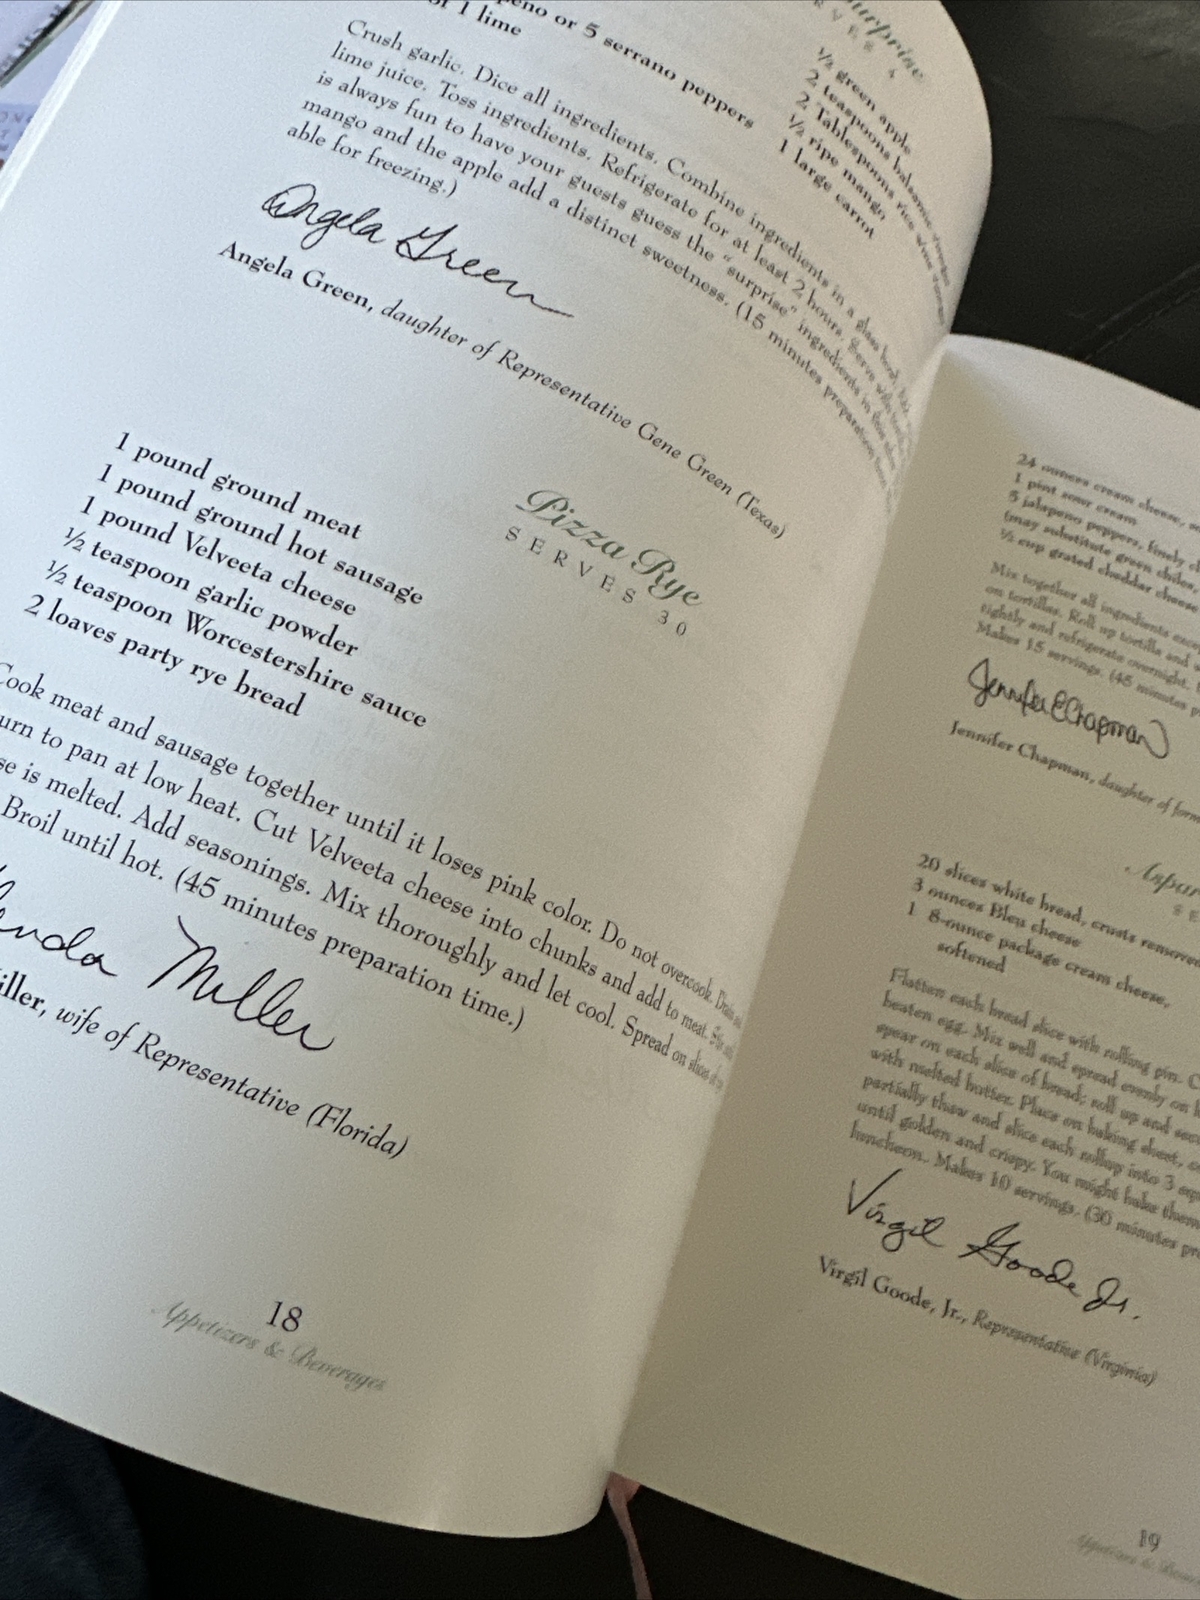 Surprise
4
½ green apple
2 teaspoons balsamic vinegar
2 Tablespoons rice wine vinegar
½ ripe mango
1 large carrot
or 5 serrano peppers
of 1 lime
Crush garlic. Dice all ingredients. Combine ingredients in a glass bowl.
lime juice. Toss ingredients. Refrigerate for at least 2 hours. Serve with
is always fun to have your guests guess the "surprise" ingredients in this
mango and the apple add a distinct sweetness. (15 minutes preparation
able for freezing.)
Angela Green
Angela Green, daughter of Representative Gene Green (Texas)
Pizza Rye
SERVES 30
1 pound ground meat
1 pound ground hot sausage
1 pound Velveeta cheese
½ teaspoon garlic powder
½ teaspoon Worcestershire sauce
2 loaves party rye bread
Cook meat and sausage together until it loses pink color. Do not overcook. Drain
urn to pan at low heat. Cut Velveeta cheese into chunks and add to meat.
se is melted. Add seasonings. Mix thoroughly and let cool. Spread on slices
Broil until hot. (45 minutes preparation time.)
enda Miller
iller, wife of Representative (Florida)
18
Appetizers & Beverages
24 ounces cream cheese,
1 pint sour cream
5 jalapeno peppers, finely
(may substitute green chiles,
½ cup grated cheddar cheese
Mix together all ingredients
on tortillas. Roll up tortilla and
tightly and refrigerate overnight.
Makes 15 servings. (45 minutes
Jennifer E Chapman
Jennifer Chapman, daughter of
Aspar
20 slices white bread, crusts removed
3 ounces Bleu cheese
1 8-ounce package cream cheese,
softened
Flatten each bread slice with rolling pin.
beaten egg. Mix well and spread evenly on
spear on each slice of bread; roll up and
with melted butter. Place on baking sheet,
partially thaw and slice each rollup into 3
until golden and crispy. You might bake them
luncheon. Makes 10 servings. (30 minutes
Virgil Goode Jr.
Virgil Goode, Jr., Representative (Virginia)
19
Appetizers &